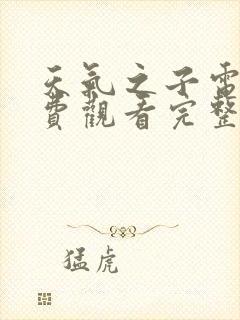 天氣之子電
費觀看完整
猛虎